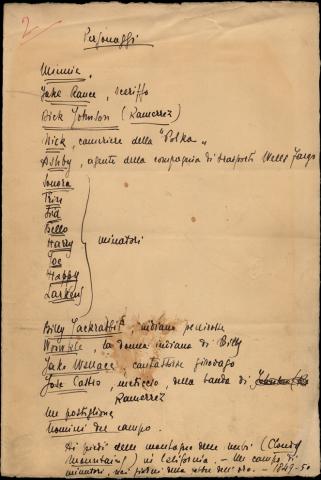 2
Personaggi
Minnie,
Jake Rance, sceriffo
Dick Johnson (Ramerrez)
Nick, cameriere della "Polka"
Ashby, agente della compagnia di trasporti Wells Fargo
Sonora
Trin
Sid
Bello
Harry
Joe
Happy
Larkens
minatori
Billy Jackrabbit, indiano pellirosse
Wowkle, la donna indiana di Billy
Jake Wallace, cantastorie girovago
José Castro, meticcio, della banda di
Ramerrez
Un postiglione
Uomini del campo.
Ai piedi delle montagne delle nubi (Cloudy
Mountains) in California - Un campo di
minatori, nei giorni della febbre dell'oro. - 1849-50